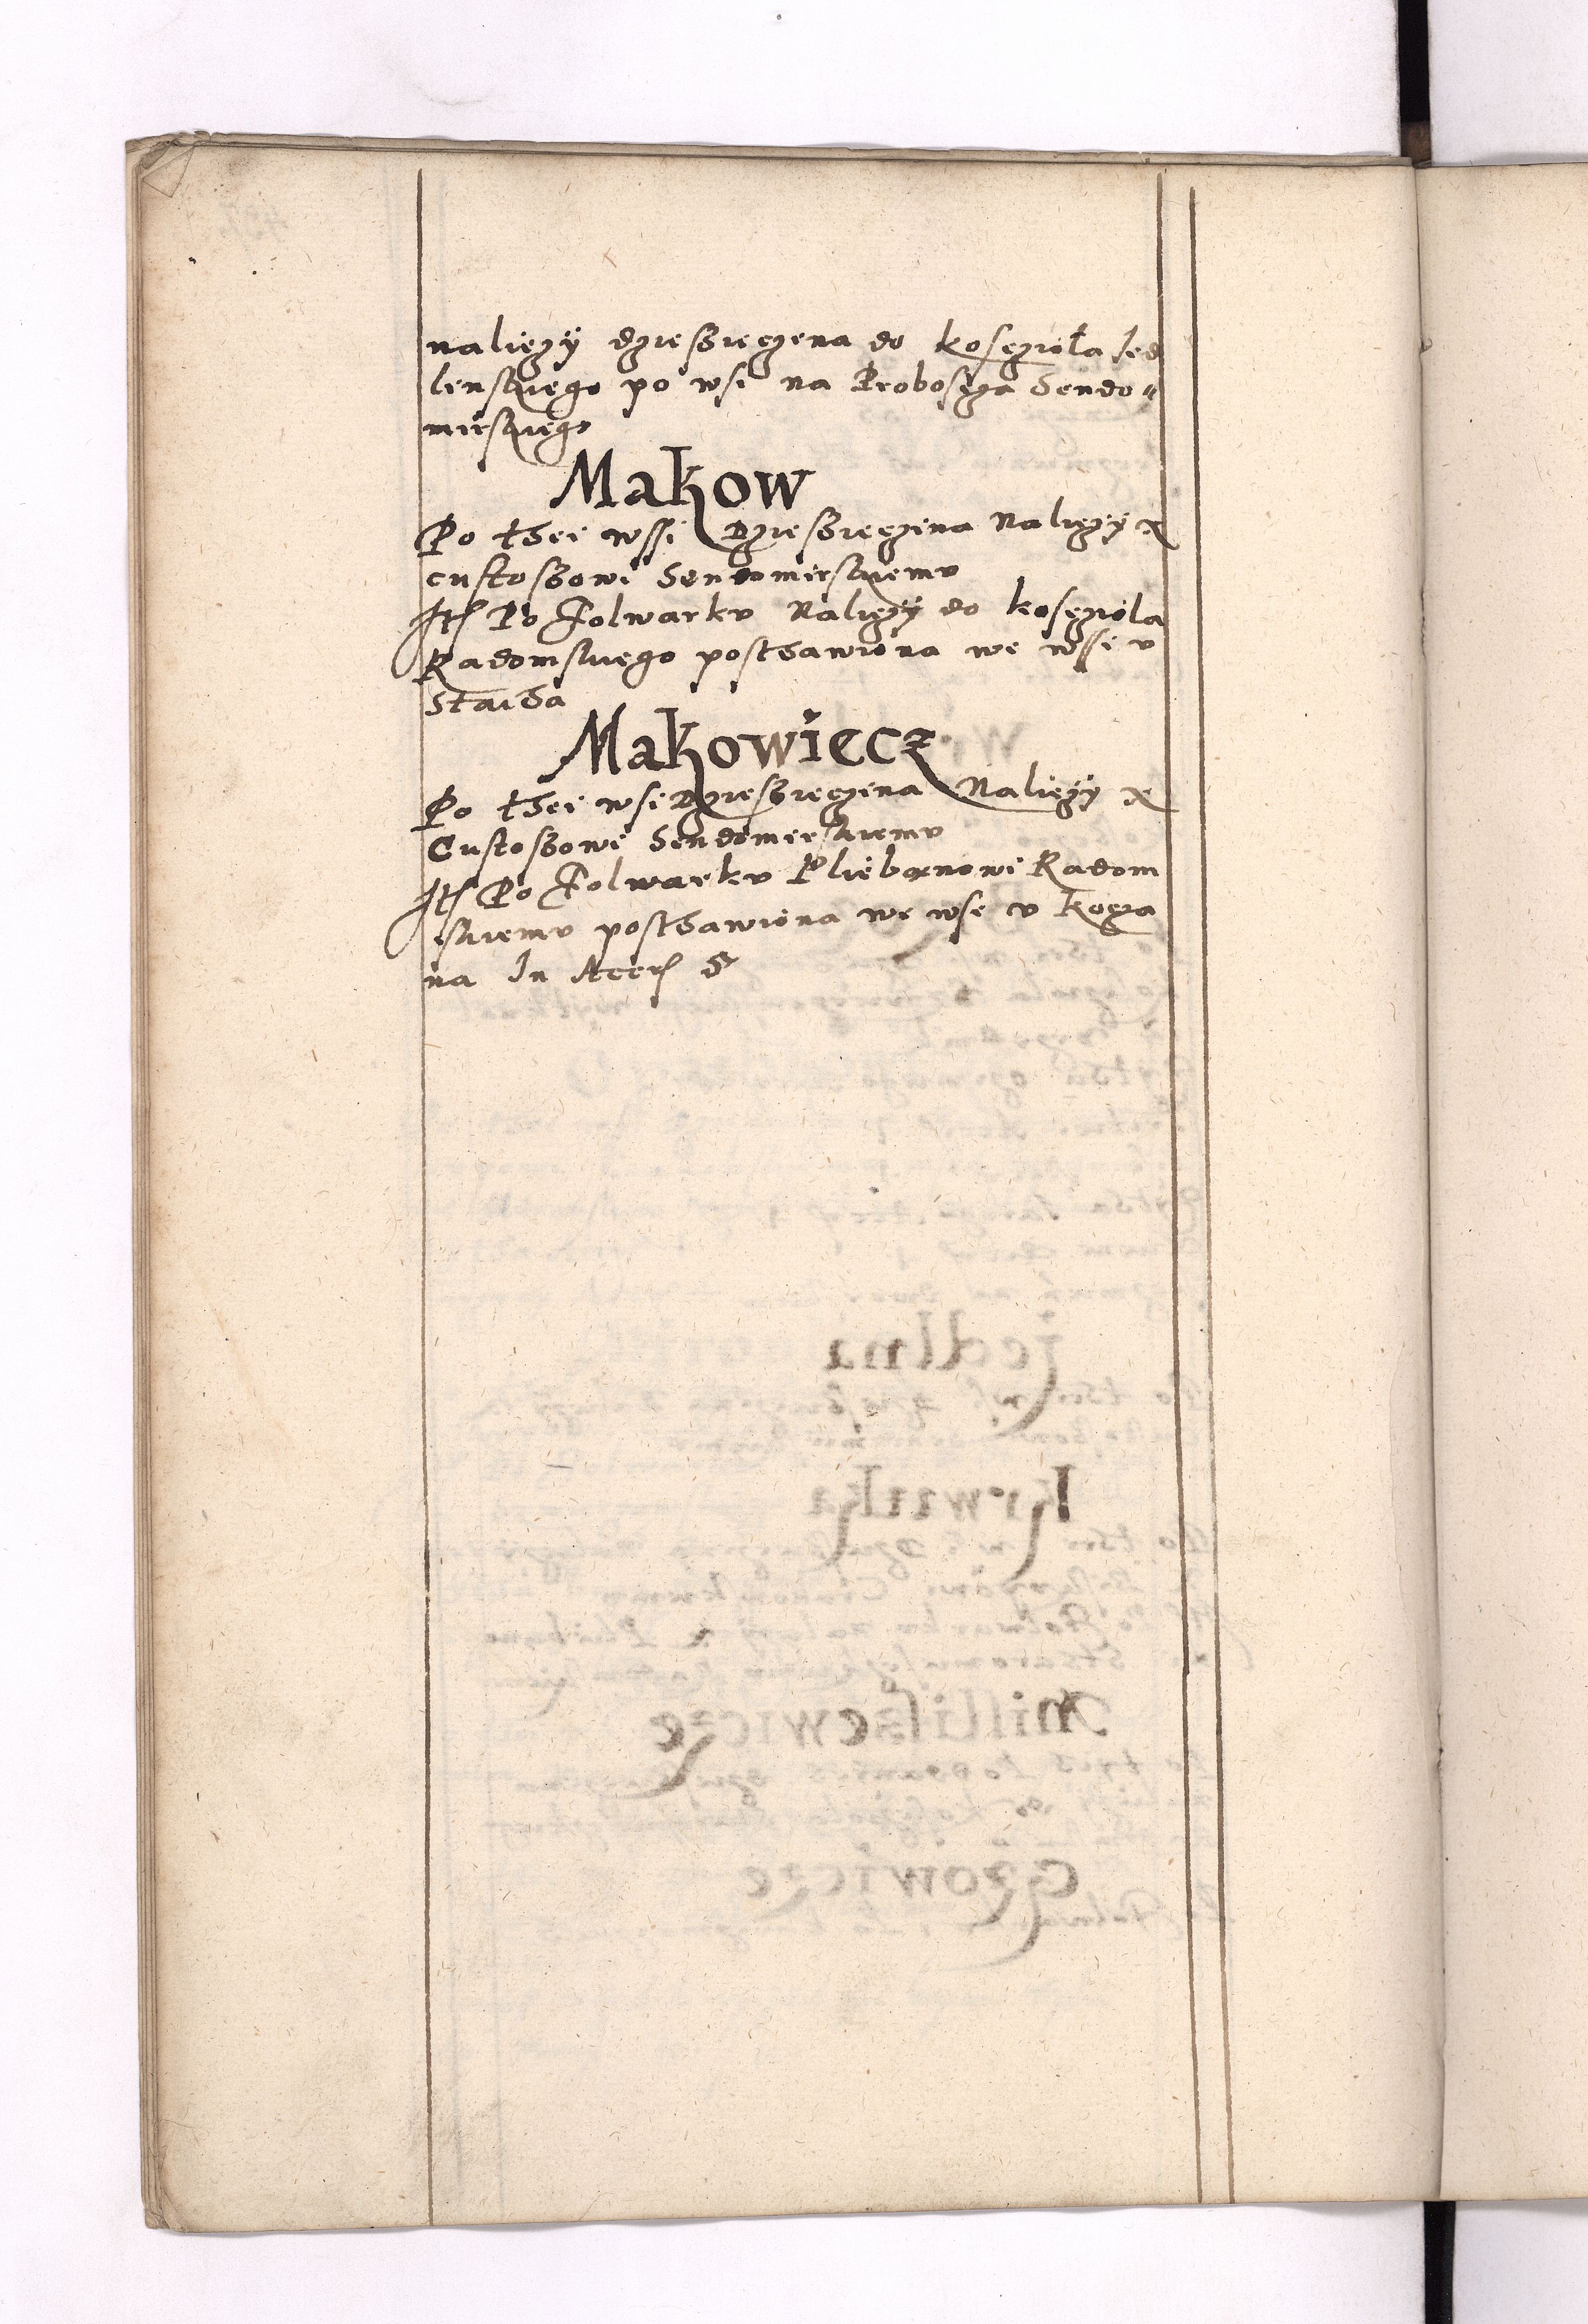 naliezÿ dzieszięczina do kosczioła Jed
lenskiego po wsi na Proboscza Sendo=
mirskiego
Makow
Po thei wssi Dzieszięczina Naliezÿ x
custoszowi Sendomirskiemu
Itē Po Folwarku Naliezÿ do kosczióla
Radomskiego posthawióna we wssi u
Staiha
Makowiecz
Po thei wsi Dzieszięczina Naliezÿ x
Custoszowi Sendomirskiemu
Itē Po Folwarku Pliebanowi Radom
skiemu posthawióna we wsi u Kocza
na In Acer